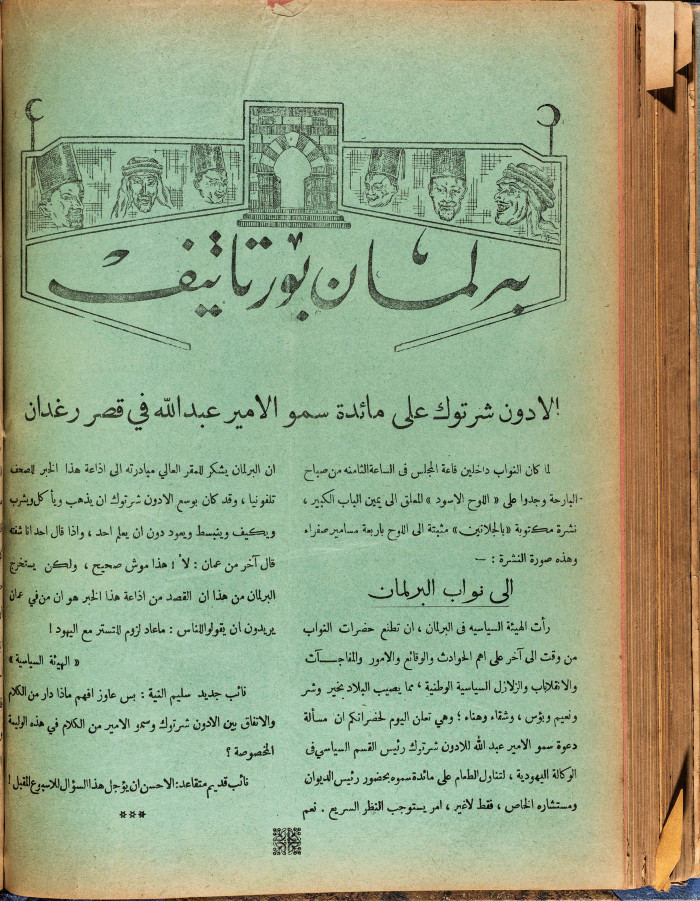 برلمان بورتاتيف
الادون شرتوك على مائدة سمو الامير عبدالله في قصر رغدان!
لما كان النواب داخلين قاعة المجلس فى الساعة الثامنه من صباح
البارحة وجدوا على « اللوح الاسود » المعلق الى يمين الباب الكبير ،
نشرة مكتوبة «بالجلاتين» مثبتة الى اللوح باربعة مسامير صفراء
وهذه صورة النشرة : —
الى نواب البرلمان
رأت الهيئة السياسيه فى البرلمان ، ان تطلع حضرات النواب
من وقت الى آخر على اهم الحوادث والوقائع والامور والمفاجآت
والانقلابات والزلازل السياسية الوطنية ، مما يصيب البلاد بخير وشر
ونعيم وبؤس ، وشقاء وهناء ؛ وهي تعلن اليوم لحضراتكم ان مسألة
دعوة سمو الامير عبد الله للادون شرتوك رئيس القسم السياسي فى
الوكالة اليهودية ، لتناول الطعام على مائدة سموه بحضور رئيس الديوان
ومستشاره الخاص ، فقط لاغير ، امر يستوجب النظر السريع . نعم
ان البرلمان يشكر للمقر العالي مبادرته الى اذاعة هذا الخبر للصحف
تلفونيا ، وقد كان بوسع الادون شرتوك ان يذهب ويأكل ويشرب
ويكيف وينبسط ويعود دون ان يعلم احد ، واذا قال احد انا شفته
قال آخر من عمان : لأ ! هذا موش صحيح ، ولكن يستخرج
البرلمان من هذا ان القصد من اذاعة هذا الخبر هو ان من في عمان
يريدون ان يقولوا للناس : ماعاد لزوم للتستر مع اليهود !
« الهيئة السياسية »
نائب جديد سليم النية : بس عاوز افهم ماذا دار من الكلام
والاتفاق بين الادون شرتوك وسمو الامير من الكلام في هذه الوليمة
المخصوصة ؟
نائب قديم متقاعد : الاحسن ان يؤجل هذا السؤال للاسبوع المقبل !
***